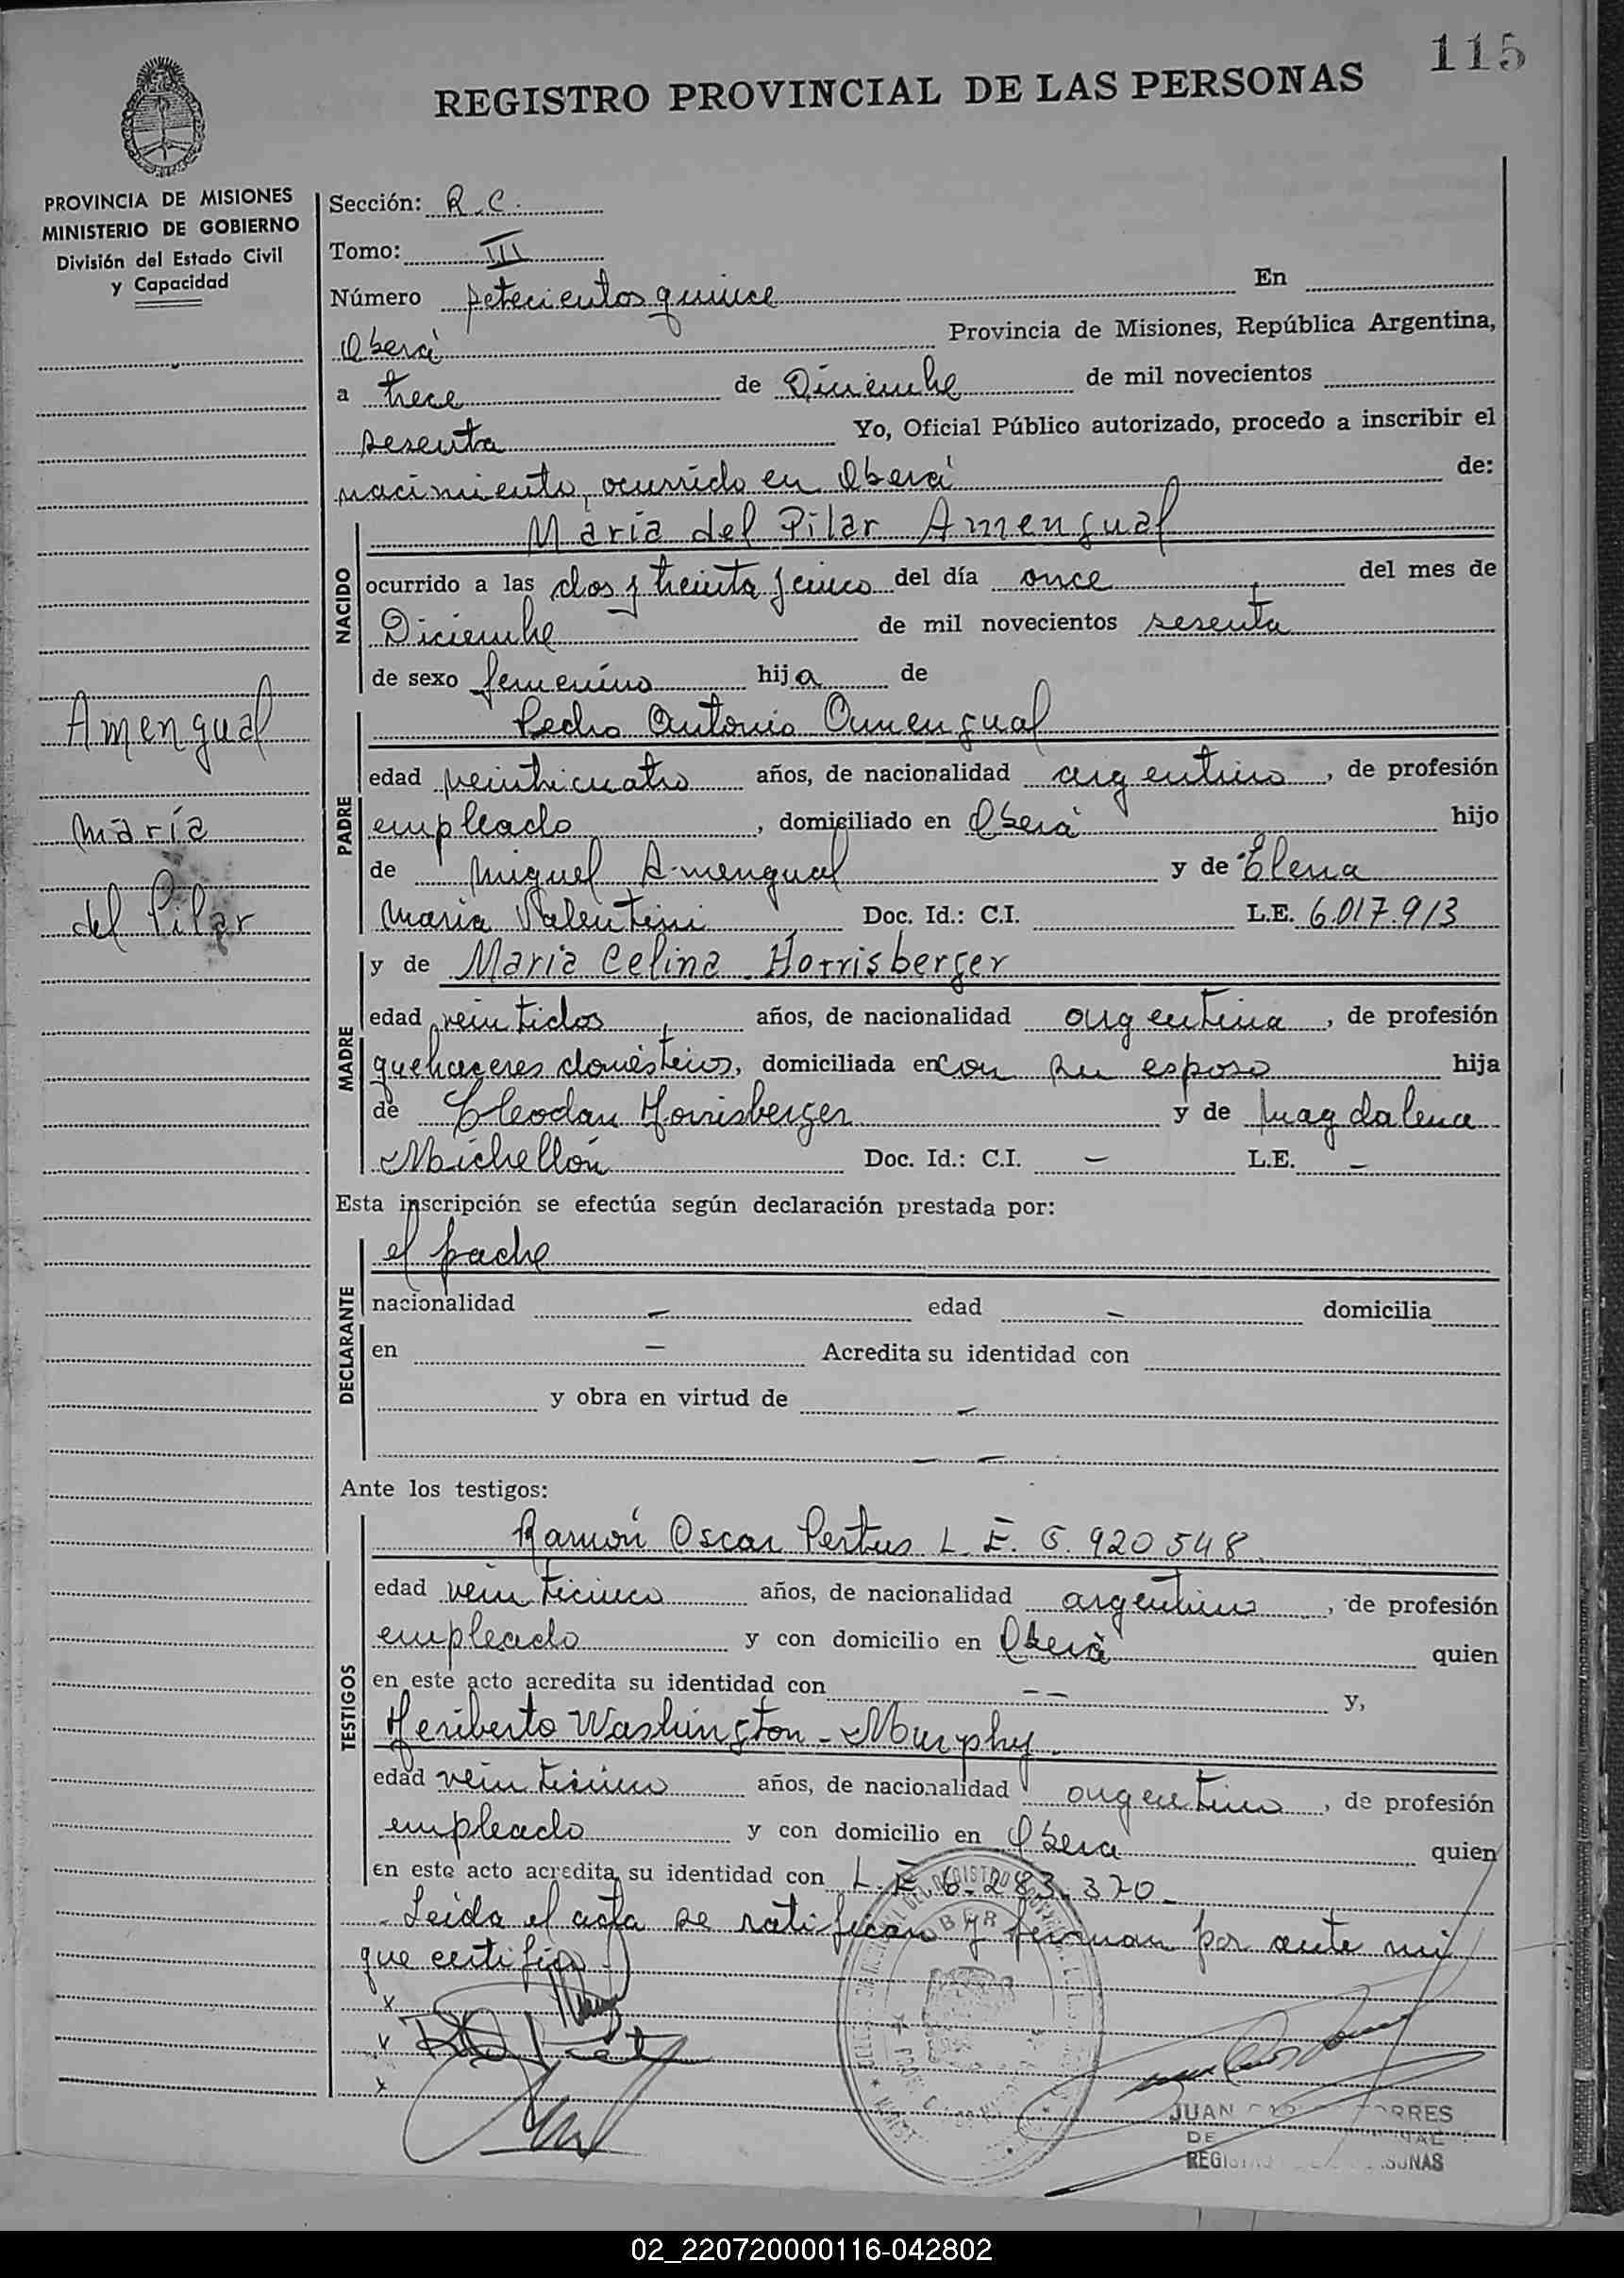 115
REGISTRO PROVINCIAL DE LAS PERSONAS
PROVINCIA DE MISIONES
MINISTERIO DE GOBIERNO
División del Estado Civil
y Capacidad
Amengual
María
del Pilar
Sección: R.C.
Tomo: III
Número setecientos quince En
Oberá Provincia de Misiones, República Argentina,
a trece de Diciembre de mil novecientos
sesenta Yo, Oficial Público autorizado, procedo a inscribir el
nacimiento, ocurrido en Oberá de:
NACIDO
María del Pilar Amengual
ocurrido a las dos y treinta y cinco del día once del mes de
Diciembre de mil novecientos sesenta
de sexo femenino hija de
PADRE
Pedro Antonio Amengual
edad veinticuatro años, de nacionalidad argentino, de profesión
empleado, domiciliado en Oberá hijo
de Miguel Amengual y de Elena
María Valentini Doc. Id.: C.I. L.E. 6.017.913
MADRE
y de María Celina Horrisberger
edad veintidos años, de nacionalidad argentina, de profesión
quehaceres domésticos, domiciliada en con su esposo hija
de Cleodan Horrisberger y de Magdalena
Michellón Doc. Id.: C.I. – L.E. –
Esta inscripción se efectúa según declaración prestada por:
DECLARANTE
el padre
nacionalidad – edad – domicilia
en – Acredita su identidad con
y obra en virtud de –
– –
Ante los testigos:
TESTIGOS
Ramón Oscar Pertus L.E. 5.920548
edad veinticinco años, de nacionalidad argentino, de profesión
empleado y con domicilio en Oberá quien
en este acto acredita su identidad con – – y,
Heriberto Washington - Murphy
edad veinticinco años, de nacionalidad argentino, de profesión
empleado y con domicilio en Oberá quien
en este acto acredita su identidad con L.E 6.283.370.-
- Leída el acta se ratifican y firman por ante mi
que certifico
x
x
x
JUAN
DE
REGIS
02_220720000116-042802